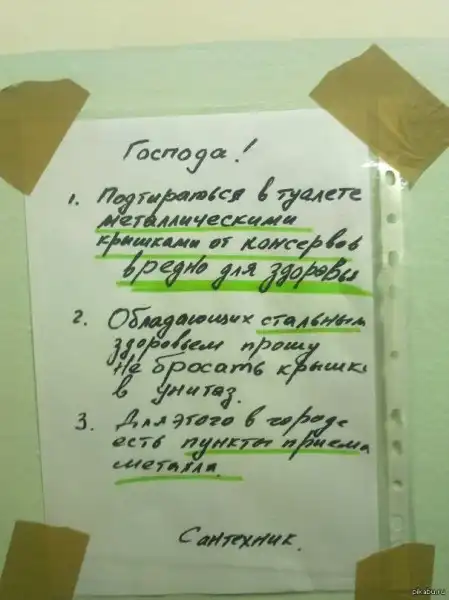 Господа!
1. Подтираться в туалете
металлическими
крышками от консервов
вредно для здоровья
2. Обладающих стальным
здоровьем прошу
не бросать крышки
в унитаз.
3. Для этого в городе
есть пункты приема
металла.
Сантехник.
pikabu.ru